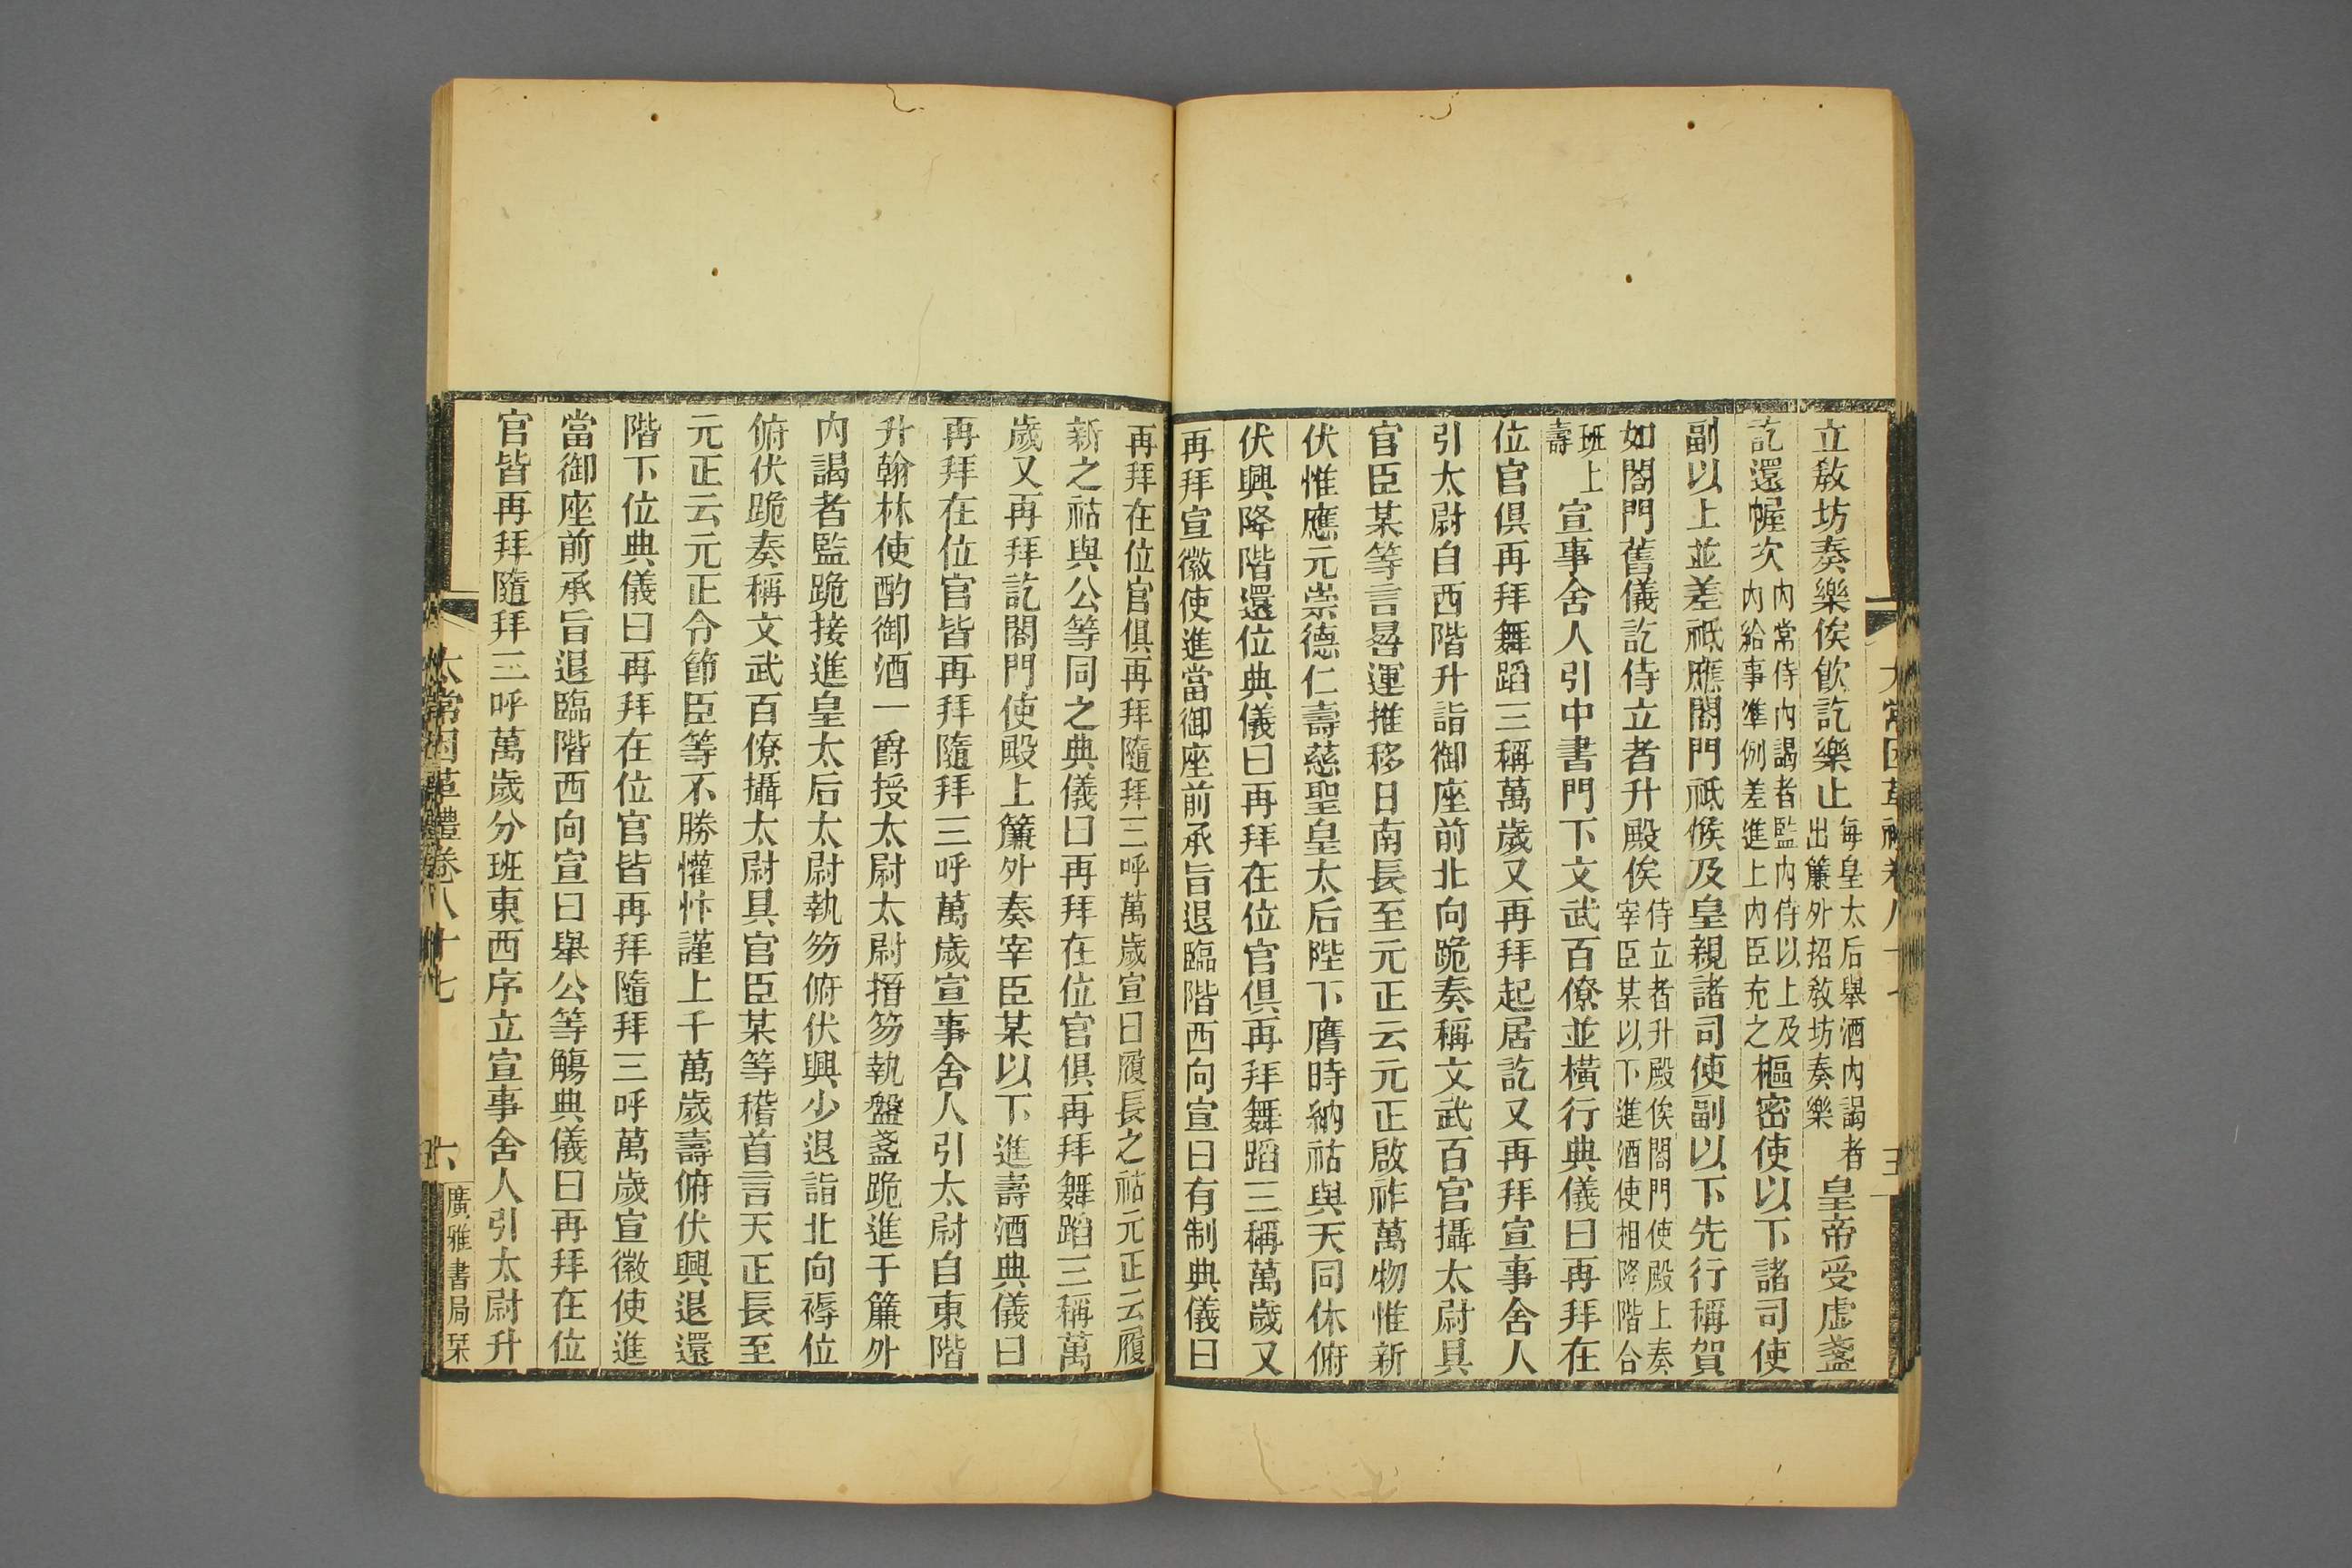 立敎坊奏樂俟飮訖樂止每皇太后舉酒內謁者出簾外招敎坊奏樂皇帝受虛盞
訖還幄次內常侍內謁者監內侍以上及內給事準例差進上內臣充之樞密使以下諸司使
副以上並差祗應閤門祗候及皇親諸司使副以下先行稱賀
如閤門舊儀訖侍立者升殿俟侍立者升殿俟閤門使殿上奏宰臣某以下進酒使相降階合
班上壽宣事舍人引中書門下文武百僚並橫行典儀曰再拜在
位官俱再拜舞蹈三稱萬歲又再拜起居訖又再拜宣事舍人
引太尉自西階升詣御座前北向跪奏稱文武百官攝太尉具
官臣某等言晷運推移日南長至元正云元正啟祚萬物惟新
伏惟應元崇德仁壽慈聖皇太后陛下膺時納祜與天同休俯
伏興降階還位典儀曰再拜在位官俱再拜舞蹈三稱萬歲又
再拜宣徽使進當御座前承旨退臨階西向宣曰有制典儀曰
再拜在位官俱再拜隨拜三呼萬歲宣曰履長之祜元正云履
新之祜與公等同之典儀曰再拜在位官俱再拜舞蹈三稱萬
歲又再拜訖閤門使殿上簾外奏宰臣某以下進壽酒典儀曰
再拜在位官皆再拜隨拜三呼萬歲宣事舍人引太尉自東階
升翰林使酌御酒一爵授太尉太尉搢笏執盤盞跪進于簾外
內謁者監跪接進皇太后太尉執笏俯伏興少退詣北向褥位
俯伏跪奏稱文武百僚攝太尉具官臣某等稽首言天正長至
元正云元正令節臣等不勝懽忭謹上千萬歲壽俯伏興退還
階下位典儀曰再拜在位官皆再拜隨拜三呼萬歲宣徽使進
當御座前承旨退臨階西向宣曰舉公等觴典儀曰再拜在位
官皆再拜隨拜三呼萬歲分班東西序立宣事舍人引太尉升
太常因革禮卷八十七
六
廣雅書局栞